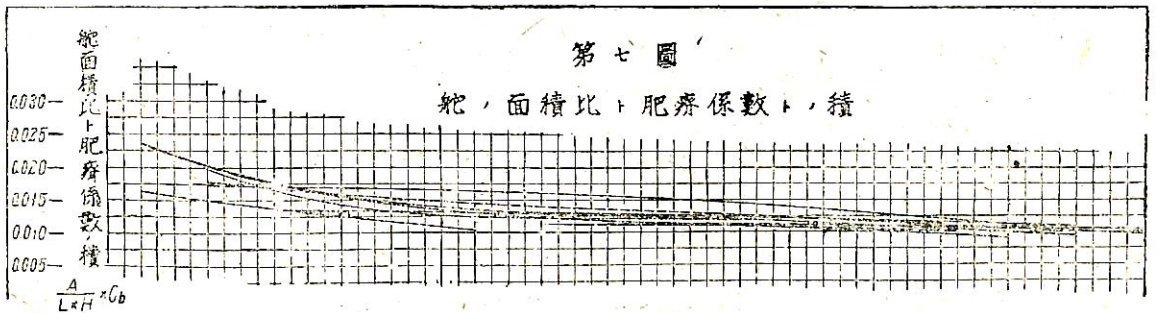 第七圖
舵ノ面積比ト肥瘠係數トノ積
舵面積比ト肥瘠係數ノ積
0.030
0.025
0.020
0.015
0.010
0.005
A
L×H ×Cb